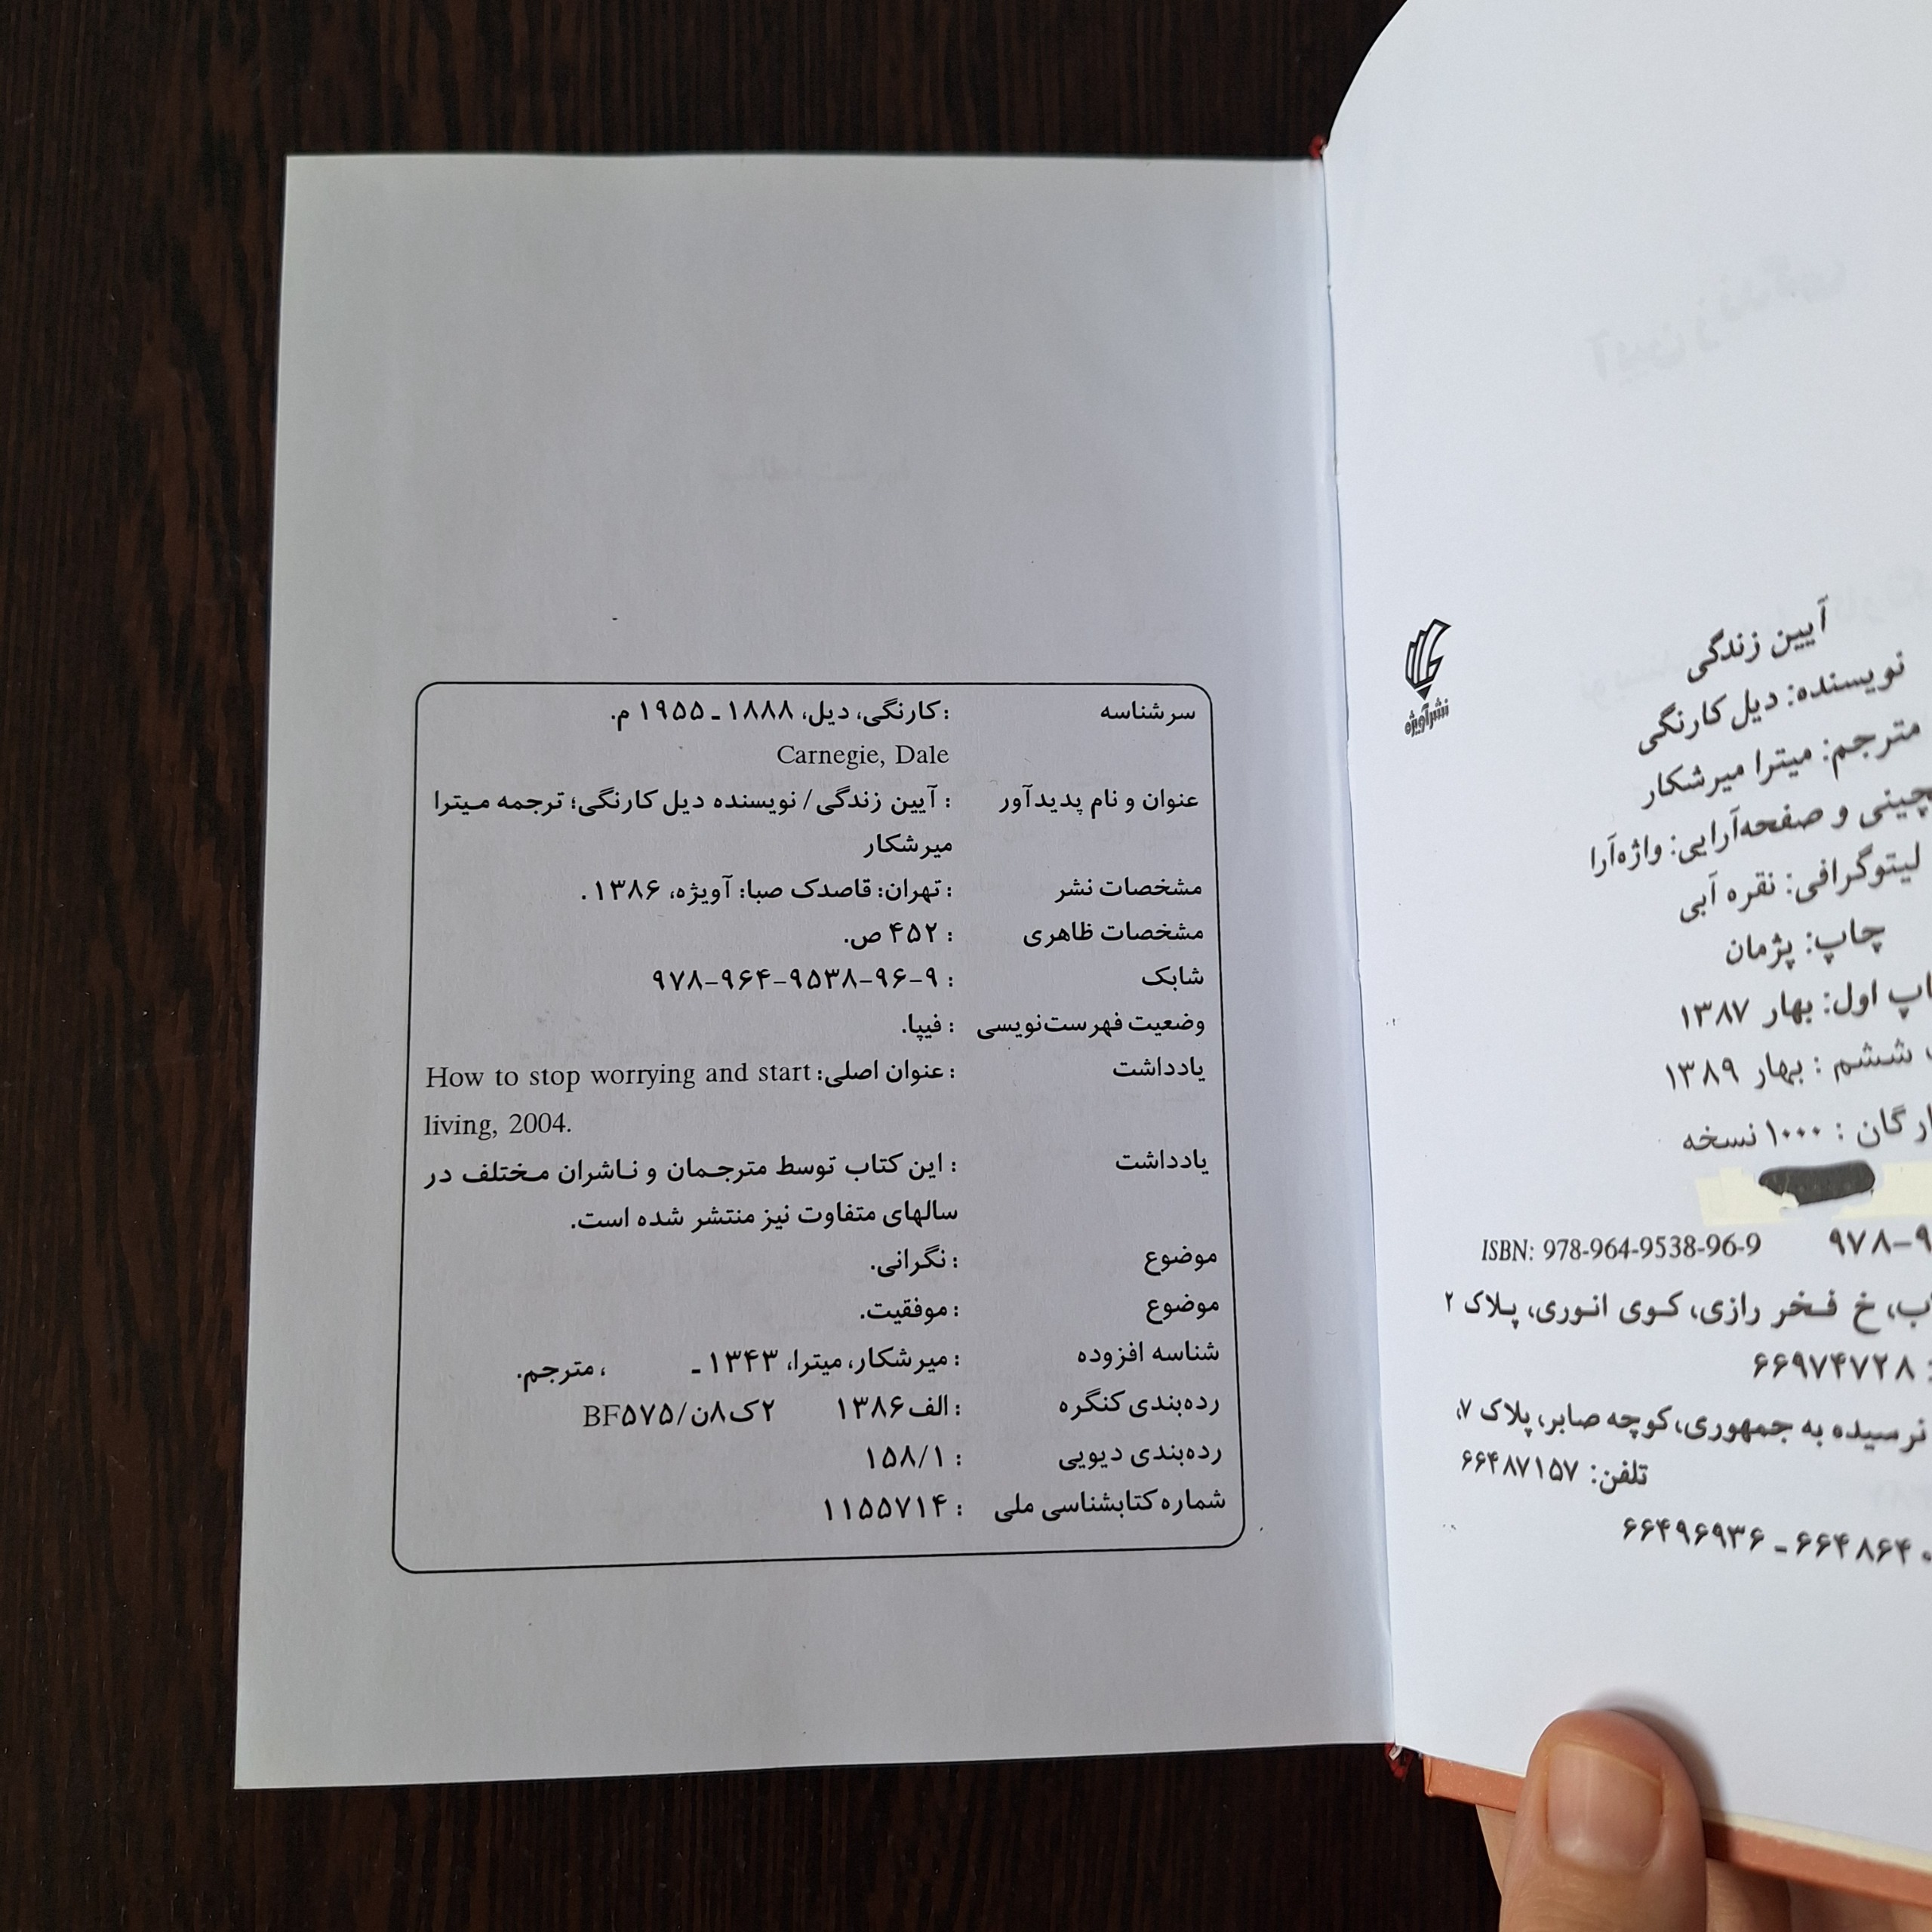 آیین زندگی
نویسنده: دیل کارنگی
مترجم: میترا میرشکار
و صفحه‌آرایی: واژه‌آرا
لیتوگرافی: نقره آبی
چاپ: پژمان
اول: بهار ۱۳۸۷
ششم : بهار ۱۳۸۹
: ۱۰۰۰ نسخه
ISBN: 978-964-9538-96-9
خ فخر رازی، کوی انوری، پلاک ۲
۶۶۹۷۴۷۲۸
نرسیده به جمهوری، کوچه صابر، پلاک ۷،
تلفن: ۶۶۴۸۷۱۵۷
ـ ۶۶۴۹۶۹۳۶
نشر آویژه
سرشناسه : کارنگی، دیل، ۱۸۸۸ ـ ۱۹۵۵ م.
Carnegie, Dale
عنوان و نام پدیدآور : آیین زندگی / نویسنده دیل کارنگی؛ ترجمه میترا
میرشکار
مشخصات نشر : تهران: قاصدک صبا: آویژه، ۱۳۸۶ .
مشخصات ظاهری : ۴۵۲ ص.
شابک : ۹۷۸-۹۶۴-۹۵۳۸-۹۶-۹
وضعیت فهرست‌نویسی : فیپا.
یادداشت : عنوان اصلی: How to stop worrying and start
living, 2004.
یادداشت : این کتاب توسط مترجمان و ناشران مختلف در
سالهای متفاوت نیز منتشر شده است.
موضوع : نگرانی.
موضوع : موفقیت.
شناسه افزوده : میرشکار، میترا، ۱۳۴۳ ـ ، مترجم.
رده‌بندی کنگره : الف۱۳۸۶ ۲ک۸ن/BF۵۷۵
رده‌بندی دیویی : ۱۵۸/۱
شماره کتابشناسی ملی : ۱۱۵۵۷۱۴